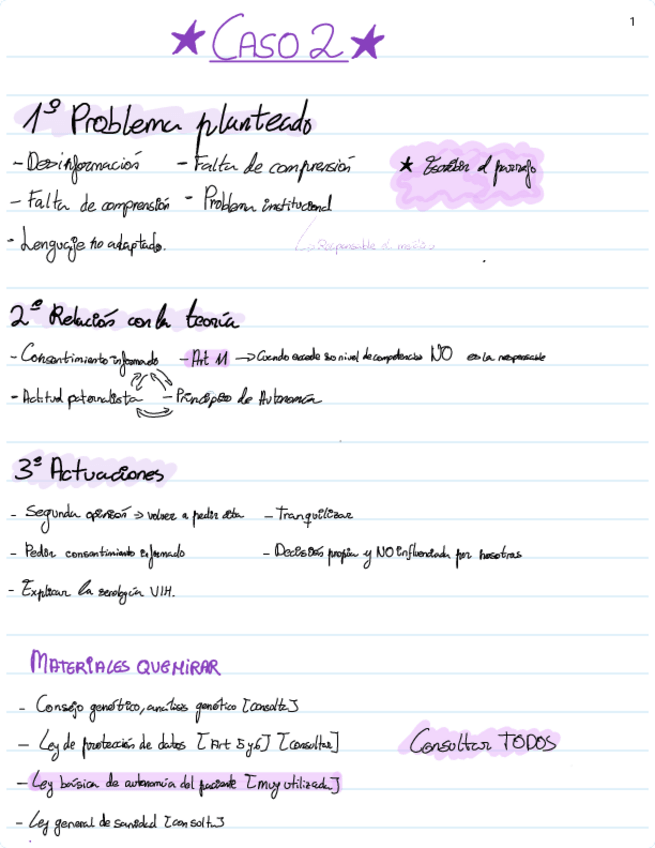 1
CASO 2
1º Problema planteado
- Desinformación - Falta de comprensión
Escribir el párrafo
- Falta de comprensión - Problema institucional
- Lenguaje no adaptado.
Responsable el
2º Relación con la teoría
- Consentimiento informado - Art 11 → Cuando excede su nivel de competencias NO es la responsable
- Actitud paternalista - Principio de Autonomía
3º Actuaciones
- Segunda opinión → volver a pedir cita - Tranquilizar
- Pedir consentimiento informado - Decisión propia y NO influenciada por nosotras
- Explicar la serología VIH.
MATERIALES QUE MIRAR
- Consejo genético, análisis genético [consulta]
- Ley de protección de datos [Art 5 y 6] [consultar]
Consultar TODOS
- Ley básica de autonomía del paciente [muy utilizada]
- Ley general de sanidad [consulta]